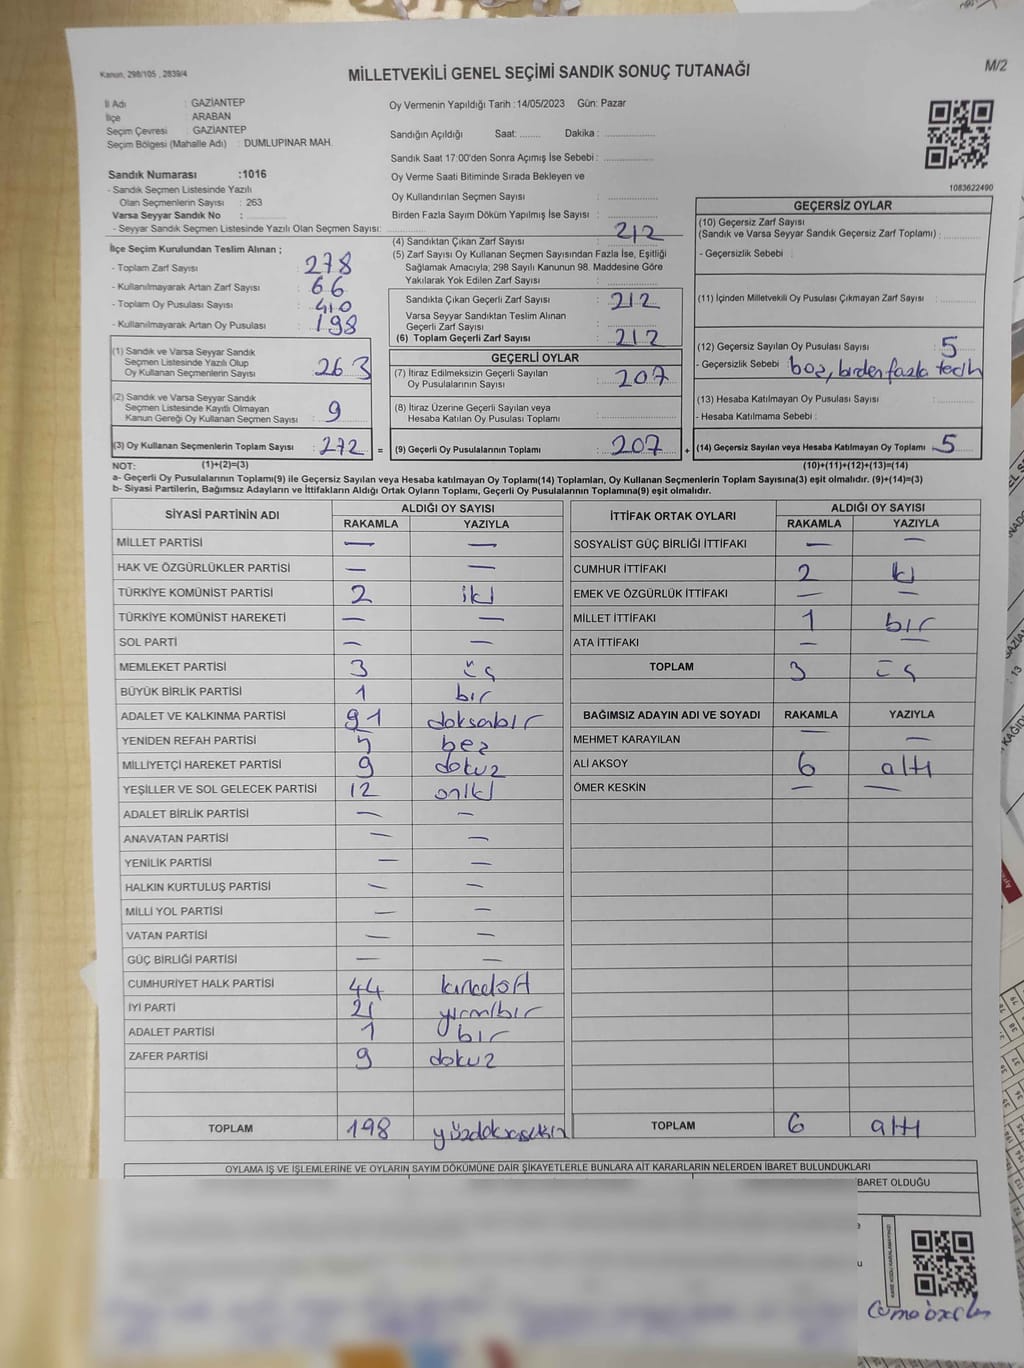 Kanun, 298/105 , 2839/4
MİLLETVEKİLİ GENEL SEÇİMİ SANDIK SONUÇ TUTANAĞI
M/2
İl Adı : GAZİANTEP
İlçe : ARABAN
Seçim Çevresi : GAZİANTEP
Seçim Bölgesi (Mahalle Adı) : DUMLUPINAR MAH.
Sandık Numarası :1016
- Sandık Seçmen Listesinde Yazılı
Olan Seçmenlerin Sayısı : 263
Varsa Seyyar Sandık No :
- Seyyar Sandık Seçmen Listesinde Yazılı Olan Seçmen Sayısı:
Oy Vermenin Yapıldığı Tarih :14/05/2023 Gün: Pazar
Sandığın Açıldığı Saat: ........ Dakika :
Sandık Saat 17:00'den Sonra Açımış İse Sebebi :
Oy Verme Saati Bitiminde Sırada Bekleyen ve
Oy Kullandırılan Seçmen Sayısı :
Birden Fazla Sayım Döküm Yapılmış İse Sayısı :
1083622490
İlçe Seçim Kurulundan Teslim Alınan ;
- Toplam Zarf Sayısı : 278
- Kullanılmayarak Artan Zarf Sayısı : 66
- Toplam Oy Pusulası Sayısı : 410
- Kullanılmayarak Artan Oy Pusulası : 198
(1) Sandık ve Varsa Seyyar Sandık
Seçmen Listesinde Yazılı Olup
Oy Kullanan Seçmenlerin Sayısı : 263
(2) Sandık ve Varsa Seyyar Sandık
Seçmen Listesinde Kayıtlı Olmayan
Kanun Gereği Oy Kullanan Seçmen Sayısı : 9
(3) Oy Kullanan Seçmenlerin Toplam Sayısı : 272 =
(4) Sandıktan Çıkan Zarf Sayısı : 212
(5) Zarf Sayısı Oy Kullanan Seçmen Sayısından Fazla İse, Eşitliği
Sağlamak Amacıyla; 298 Sayılı Kanunun 98. Maddesine Göre
Yakılarak Yok Edilen Zarf Sayısı :
Sandıkta Çıkan Geçerli Zarf Sayısı : 212
Varsa Seyyar Sandıktan Teslim Alınan
Geçerli Zarf Sayısı :
(6) Toplam Geçerli Zarf Sayısı : 212
GEÇERLİ OYLAR
(7) İtiraz Edilmeksizin Geçerli Sayılan
Oy Pusulalarının Sayısı : 207
(8) İtiraz Üzerine Geçerli Sayılan veya
Hesaba Katılan Oy Pusulası Toplamı :
(9) Geçerli Oy Pusulalarının Toplamı : 207 +
GEÇERSİZ OYLAR
(10) Geçersiz Zarf Sayısı
(Sandık ve Varsa Seyyar Sandık Geçersiz Zarf Toplamı) :
- Geçersizlik Sebebi :
(11) İçinden Milletvekili Oy Pusulası Çıkmayan Zarf Sayısı :
(12) Geçersiz Sayılan Oy Pusulası Sayısı : 5
- Geçersizlik Sebebi : boş, birden fazla
(13) Hesaba Katılmayan Oy Pusulası Sayısı :
- Hesaba Katılmama Sebebi :
(14) Geçersiz Sayılan veya Hesaba Katılmayan Oy Toplamı : 5
NOT: (1)+(2)=(3)
(10)+(11)+(12)+(13)=(14)
a- Geçerli Oy Pusulalarının Toplamı(9) ile Geçersiz Sayılan veya Hesaba katılmayan Oy Toplamı(14) Toplamları, Oy Kullanan Seçmenlerin Toplam Sayısına(3) eşit olmalıdır. (9)+(14)=(3)
b- Siyasi Partilerin, Bağımsız Adayların ve İttifakların Aldığı Ortak Oyların Toplamı, Geçerli Oy Pusulalarının Toplamına(9) eşit olmalıdır.
SİYASİ PARTİNİN ADI ALDIĞI OY SAYISI
RAKAMLA YAZIYLA
MİLLET PARTİSİ — —
HAK VE ÖZGÜRLÜKLER PARTİSİ — —
TÜRKİYE KOMÜNİST PARTİSİ 2 iki
TÜRKİYE KOMÜNİST HAREKETİ — —
SOL PARTİ — —
MEMLEKET PARTİSİ 3 üç
BÜYÜK BİRLİK PARTİSİ 1 bir
ADALET VE KALKINMA PARTİSİ 91 doksanbir
YENİDEN REFAH PARTİSİ 5 beş
MİLLİYETÇİ HAREKET PARTİSİ 9 dokuz
YEŞİLLER VE SOL GELECEK PARTİSİ 12 oniki
ADALET BİRLİK PARTİSİ — —
ANAVATAN PARTİSİ — —
YENİLİK PARTİSİ — —
HALKIN KURTULUŞ PARTİSİ — —
MİLLİ YOL PARTİSİ — —
VATAN PARTİSİ — —
GÜÇ BİRLİĞİ PARTİSİ — —
CUMHURİYET HALK PARTİSİ 44 kırkdört
İYİ PARTİ 21 yirmibir
ADALET PARTİSİ 1 bir
ZAFER PARTİSİ 9 dokuz
TOPLAM 198 yüzdoksansekiz
İTTİFAK ORTAK OYLARI ALDIĞI OY SAYISI
RAKAMLA YAZIYLA
SOSYALİST GÜÇ BİRLİĞİ İTTİFAKI — —
CUMHUR İTTİFAKI 2 iki
EMEK VE ÖZGÜRLÜK İTTİFAKI — —
MİLLET İTTİFAKI 1 bir
ATA İTTİFAKI — —
TOPLAM 3 üç
BAĞIMSIZ ADAYIN ADI VE SOYADI RAKAMLA YAZIYLA
MEHMET KARAYILAN — —
ALİ AKSOY 6 altı
ÖMER KESKİN — —
TOPLAM 6 altı
OYLAMA İŞ VE İŞLEMLERİNE VE OYLARIN SAYIM DÖKÜMÜNE DAİR ŞİKAYETLERLE BUNLARA AİT KARARLARIN NELERDEN İBARET BULUNDUKLARI
BARET OLDUĞU